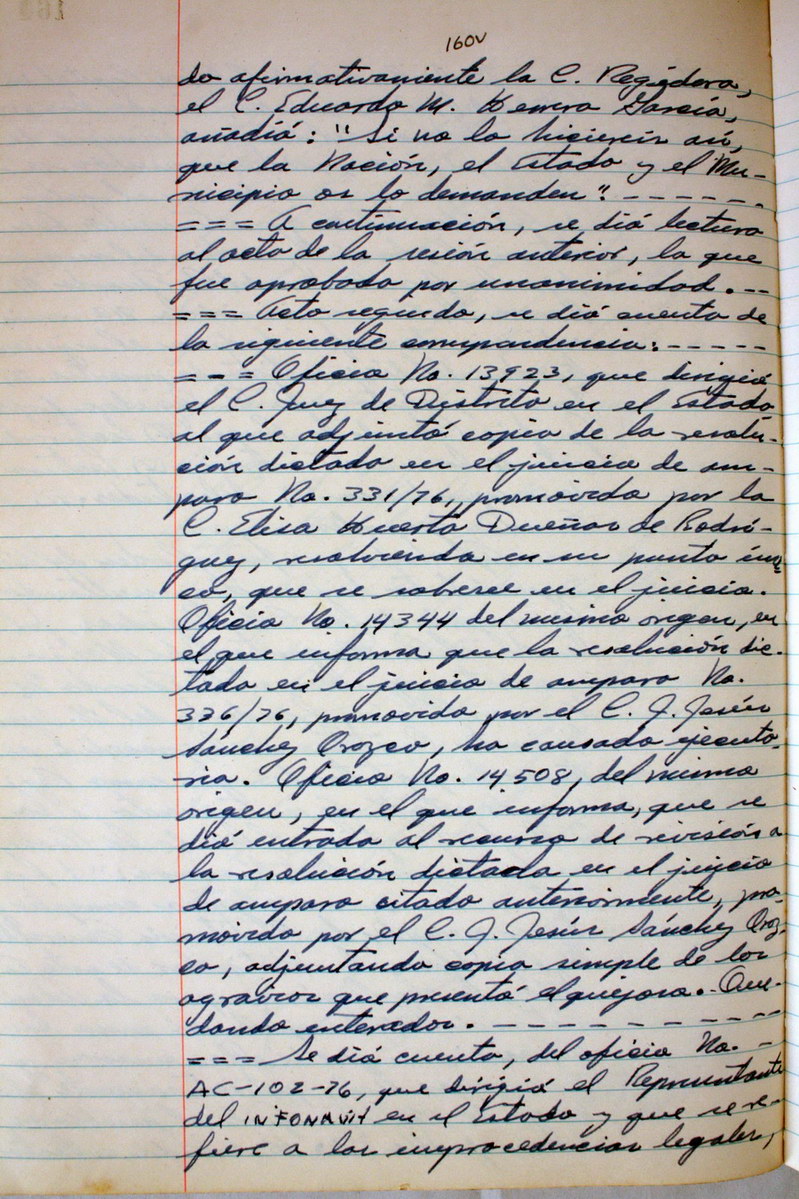 160v
do afirmativamente la C. Regidora,
el C. Eduardo M. Herrera García,
añadió: "Si no lo hicieren así,
que la Nación, el Estado y el Mu-
nicipio os lo demanden". - - - - - -
=== A continuación, se dió lectura
al acta de la sesión anterior, la que
fue aprobada por unanimidad. --
=== Acto seguido, se dió cuenta de
la siguiente correspondencia: - - - - -
=-= Oficio No. 13923, que dirigió
el C. Juez de Distrito en el Estado
al que adjuntó copia de la resolu-
ción dictada en el juicio de am-
paro No. 331/76, promovido por la
C. Elisa Huerta Dueñas de Rodrí-
guez, resolviendo en su punto úni
co, que se sobresee en el juicio.
Oficio No. 14344 del mismo origen, en
el que informa que la resolución dic-
tada en el juicio de amparo No.
336/76, promovido por el C. J. Jesús
Sánchez Orozco, ha causado ejecuto-
ria. Oficio No. 14508, del mismo
origen, en el que informa, que se
dió entrada al recurso de revisión a
la resolución dictada en el juicio
de amparo citado anteriormente, pro-
movido por el C. J. Jesús Sánchez Oroz-
co, adjuntando copia simple de los
agravios que presentó el quejoso.- Que-
dando enterados. - - - - - - - - - -
=== Se dió cuenta, del oficio No. -
AC-102-76, que dirigió el Representante
del INFONAVIT en el Estado y que se re-
fiere a las improcedencias legales,